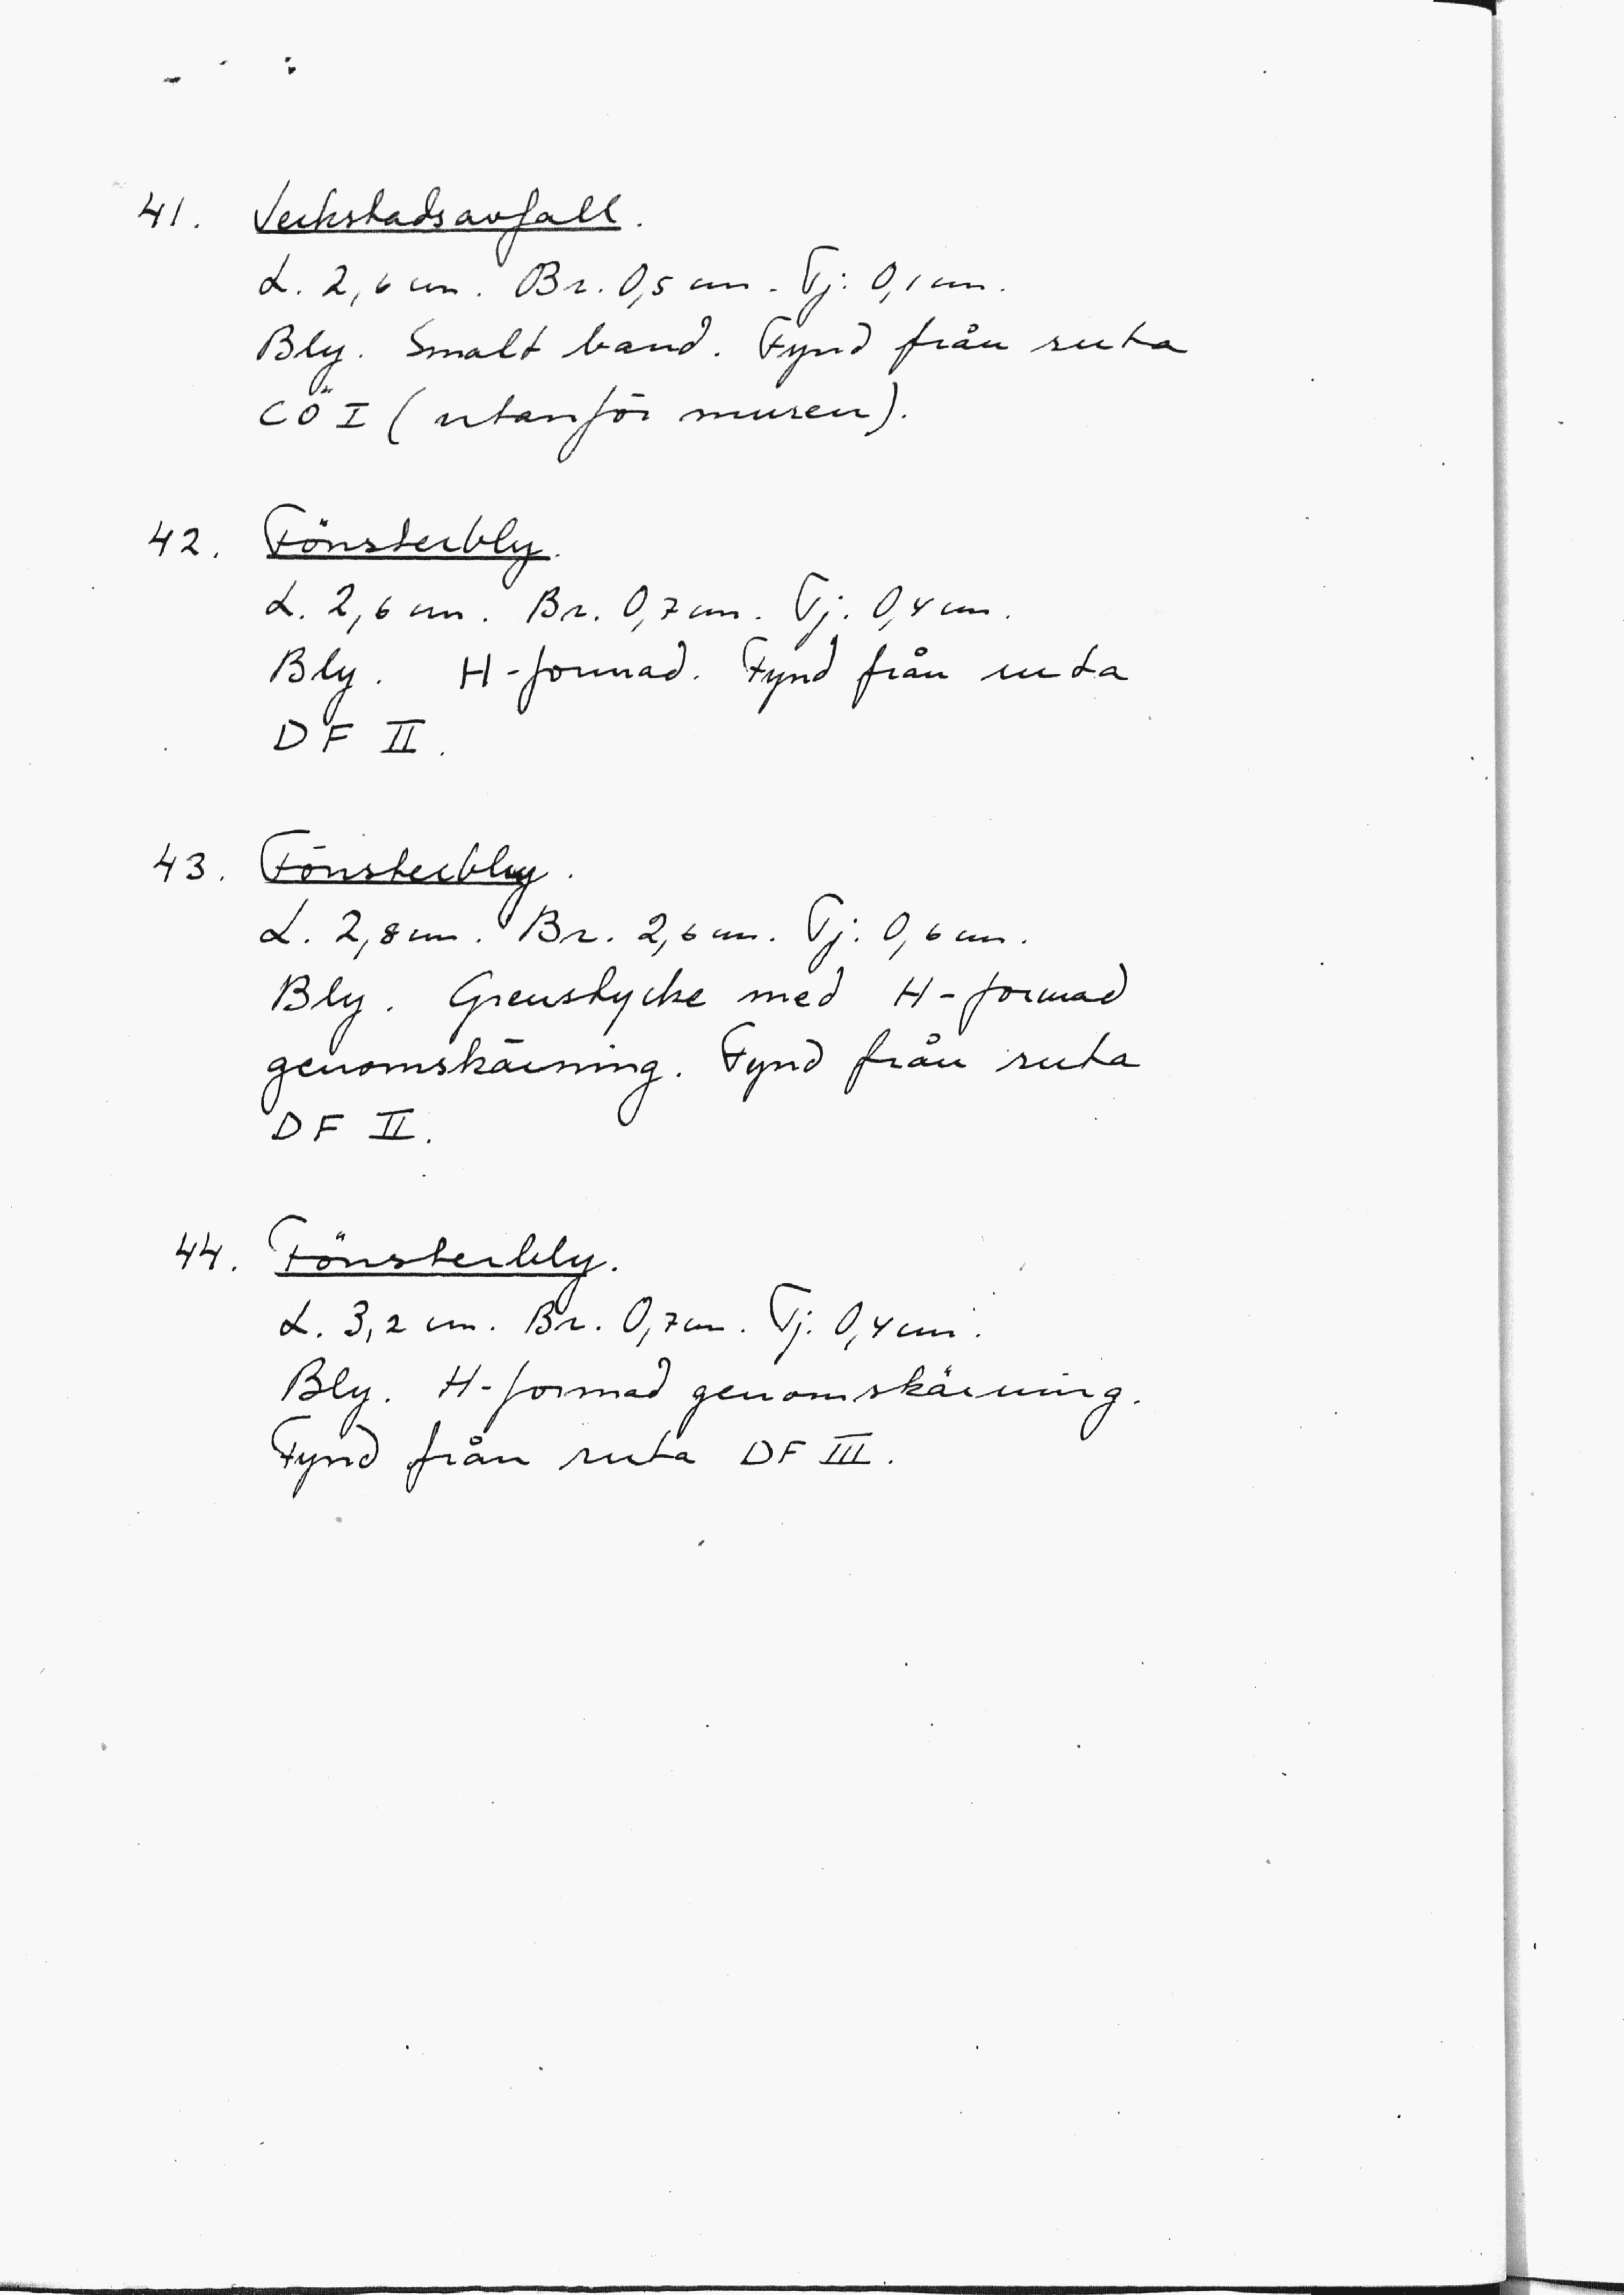 41. Verkstadsavfall.
L. 2,6 cm. Br. 0,5 cm. Tj. 0,1 cm.
Bly. Smalt band. Fynd från ruta
CÖ I (utanför muren).
42. Fönsterbly.
L. 2,6 cm. Br. 0,7 cm. Tj. 0,4 cm.
Bly. H-formad. Fynd från ruta
DF II.
43. Fönsterbly.
L. 2,8 cm. Br. 2,6 cm. Tj. 0,6 cm.
Bly. Grenstycke med H-formad
genomskärning. Fynd från ruta
DF II.
44. Fönsterbly.
L. 3,2 cm. Br. 0,7 cm. Tj. 0,4 cm.
Bly. H-formad genomskärning.
Fynd från ruta DF III.